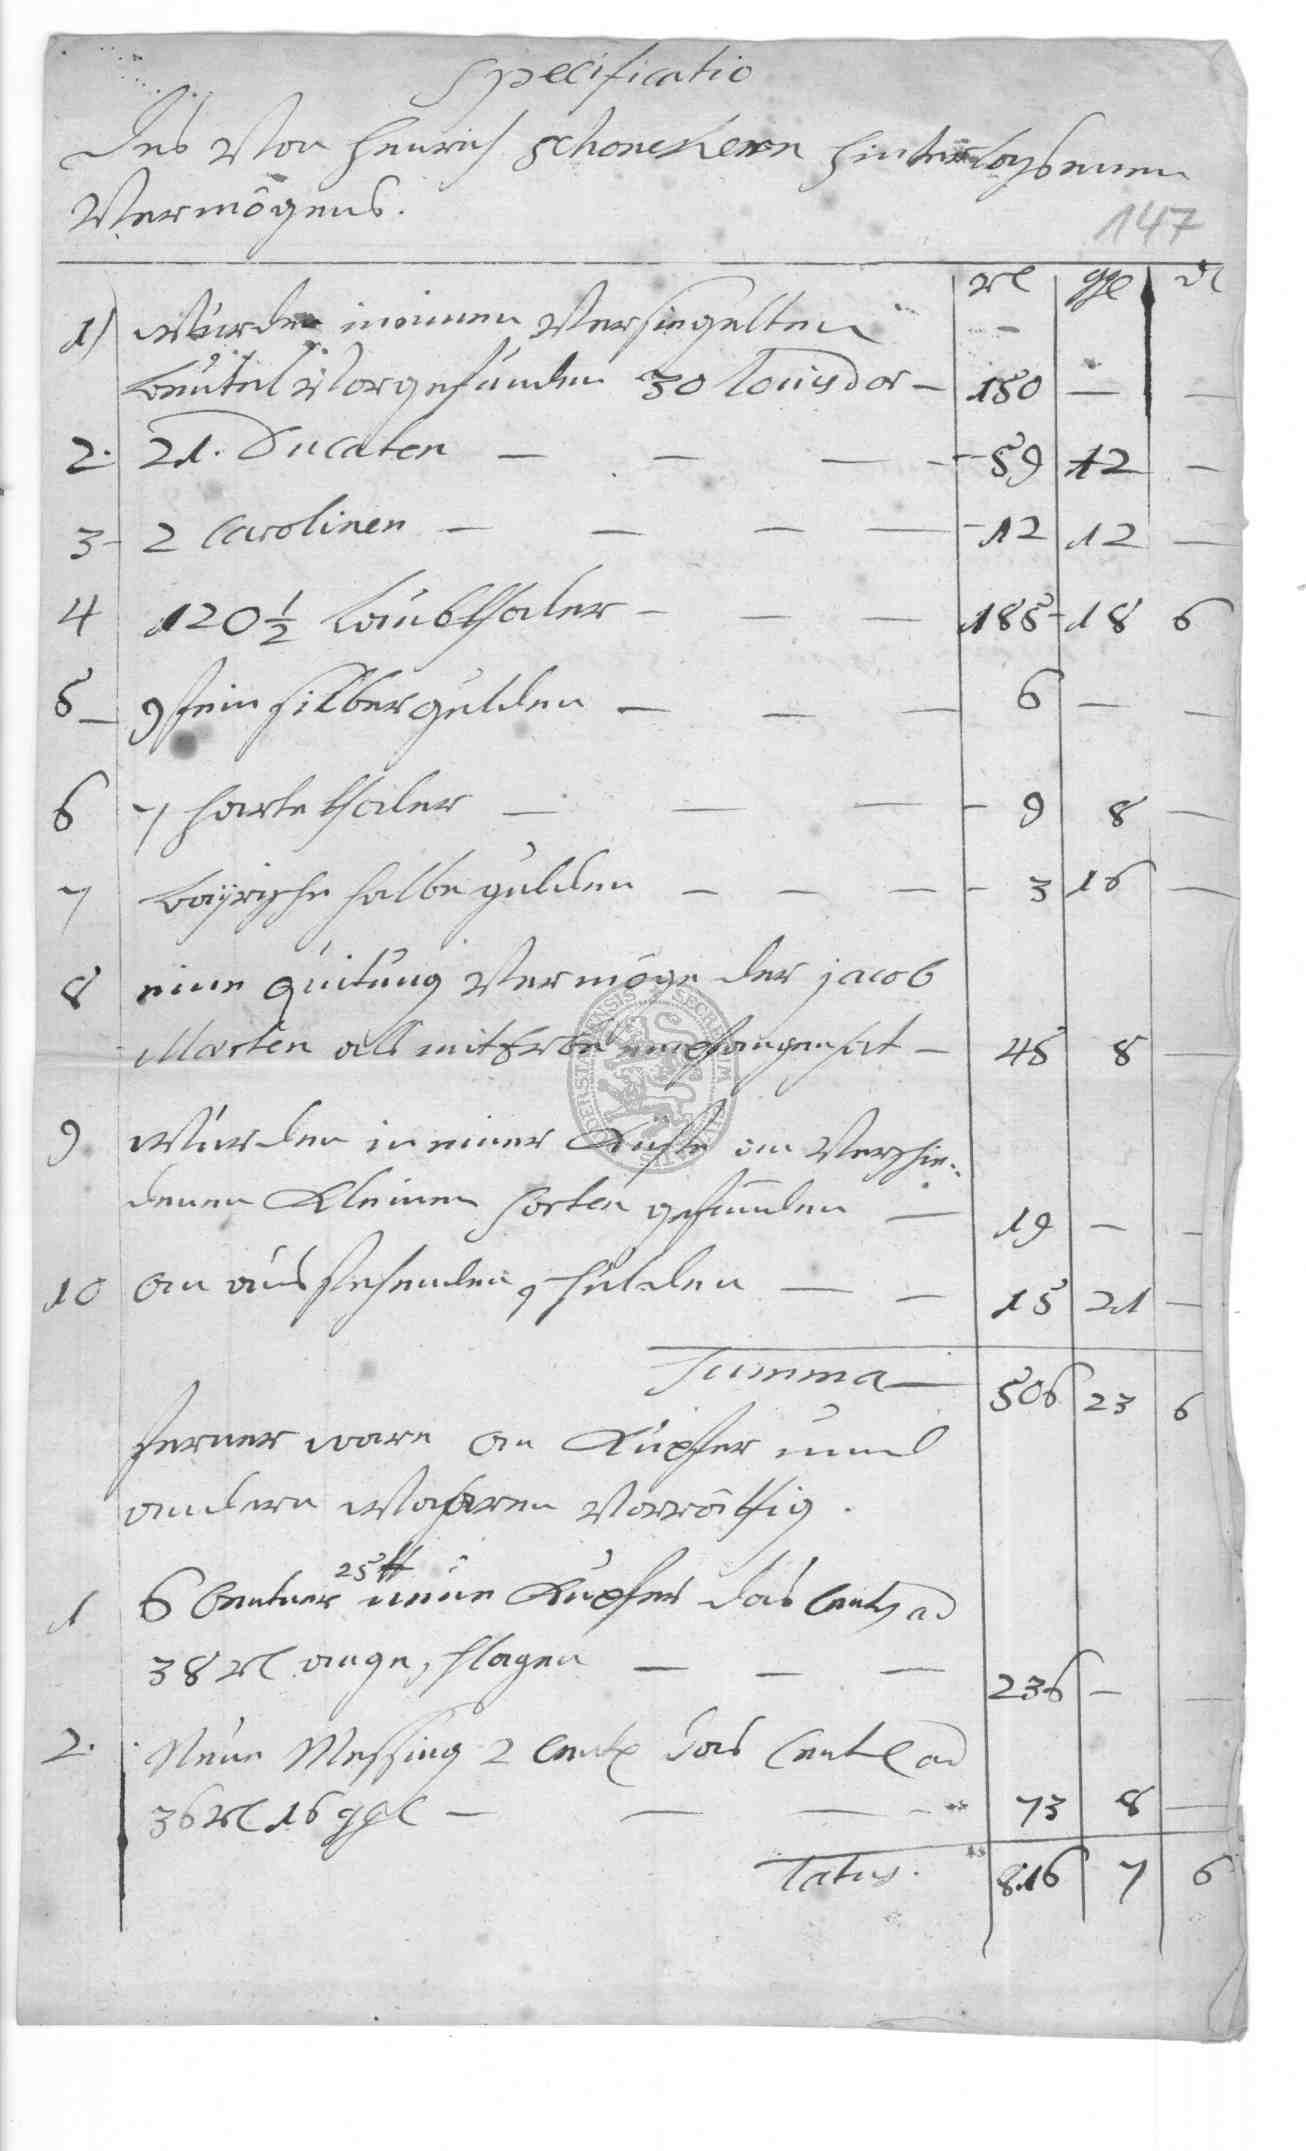 Specificatio
Des Von Henrich Schonekern hinterlaßenen
Vermögens.
147
rl ggl d
1) Wurden in einem Versiegelten
beutel Vorgefunden 30 Louisdor — 150 — —
2. 21. Ducaten — — — 59 12 —
3 - 2 Carolinen — — — — 12 12 —
4 120 1/2 Laubthaler — — — 185 18 6
5 — 9 fein silbergulden — — — 6 — —
6 7 harte thaler — — — 9 8 —
7 bayrische halbe gulden — — — 3 16 —
8 eine quitung Vermöge der jacob
Marten als mit Erbe empfangen hat — 45 8 —
9 Wurden in einer Kiste an Verschie-
denen Kleinen sorten gefunden — 19 — —
10 an ausstehenden schulden — — 15 21 —
Summa — 506 23 6
ferner ware an Kupfer und
andern Wahren Vorräthig.
25 ℔
1 6 Centner neue Kupfer das Cent ad
38 rl angeschlagen — — — 236 — —
2. Neue Messing 2 Cent das Cent ad
36 rl 16 ggl — — — 73 8 —
Latus. 816 7 6